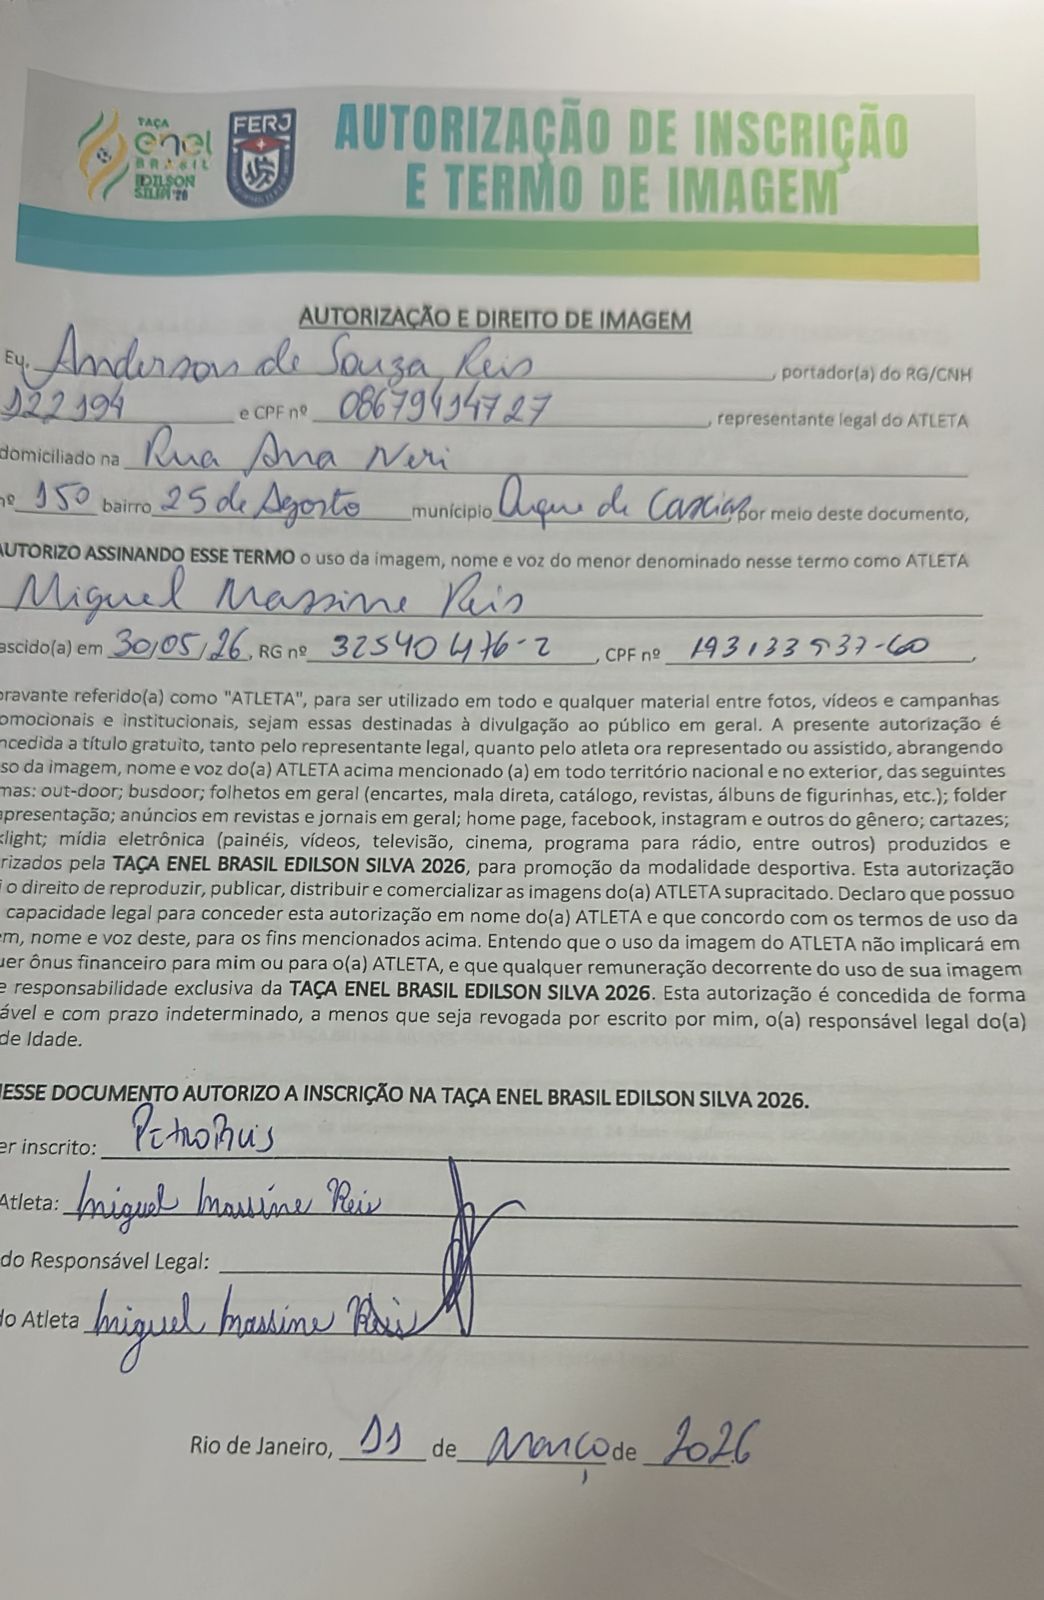 TAÇA
enel
BRASIL
EDILSON
SILVA'26
FERJ
AUTORIZAÇÃO DE INSCRIÇÃO
E TERMO DE IMAGEM
AUTORIZAÇÃO E DIREITO DE IMAGEM
Eu, Anderson de Souza Reis, portador(a) do RG/CNH
122194 e CPF nº 08679414727, representante legal do ATLETA
domiciliado na Rua Ana Neri
nº 150 bairro 25 de Agosto munícipio Duque de Caxias, por meio deste documento,
AUTORIZO ASSINANDO ESSE TERMO o uso da imagem, nome e voz do menor denominado nesse termo como ATLETA
Miguel Massine Reis
ascido(a) em 30/05/26, RG nº 32540476-2, CPF nº
oravante referido(a) como "ATLETA", para ser utilizado em todo e qualquer material entre fotos, vídeos e campanhas
omocionais e institucionais, sejam essas destinadas à divulgação ao público em geral. A presente autorização é
ncedida a título gratuito, tanto pelo representante legal, quanto pelo atleta ora representado ou assistido, abrangendo
so da imagem, nome e voz do(a) ATLETA acima mencionado (a) em todo território nacional e no exterior, das seguintes
mas: out-door; busdoor; folhetos em geral (encartes, mala direta, catálogo, revistas, álbuns de figurinhas, etc.); folder
apresentação; anúncios em revistas e jornais em geral; home page, facebook, instagram e outros do gênero; cartazes;
klight; mídia eletrônica (painéis, vídeos, televisão, cinema, programa para rádio, entre outros) produzidos e
rizados pela TAÇA ENEL BRASIL EDILSON SILVA 2026, para promoção da modalidade desportiva. Esta autorização
i o direito de reproduzir, publicar, distribuir e comercializar as imagens do(a) ATLETA supracitado. Declaro que possuo
capacidade legal para conceder esta autorização em nome do(a) ATLETA e que concordo com os termos de uso da
em, nome e voz deste, para os fins mencionados acima. Entendo que o uso da imagem do ATLETA não implicará em
uer ônus financeiro para mim ou para o(a) ATLETA, e que qualquer remuneração decorrente do uso de sua imagem
e responsabilidade exclusiva da TAÇA ENEL BRASIL EDILSON SILVA 2026. Esta autorização é concedida de forma
ável e com prazo indeterminado, a menos que seja revogada por escrito por mim, o(a) responsável legal do(a)
de Idade.
NESSE DOCUMENTO AUTORIZO A INSCRIÇÃO NA TAÇA ENEL BRASIL EDILSON SILVA 2026.
er inscrito: PetroRuis
Atleta: Miguel Massine Reis
do Responsável Legal:
do Atleta Miguel Massine Reis
Rio de Janeiro, 11 de Março de 2026